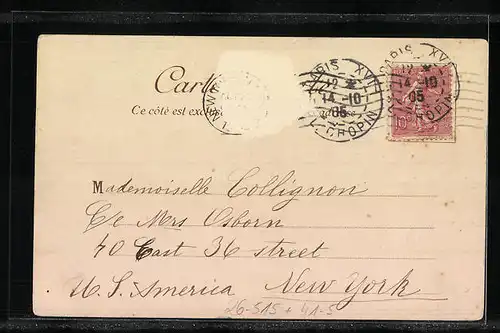 Carte
Ce côté est exc
PARIS XVI
12
14-10
05
R. CHOPIN
PARIS XVI
12
14-10
05
CHOPIN
10
Mademoiselle Collignon
C/e Mrs Osborn
40 East 36 street
U.S. America New York
26-515 + 41-5